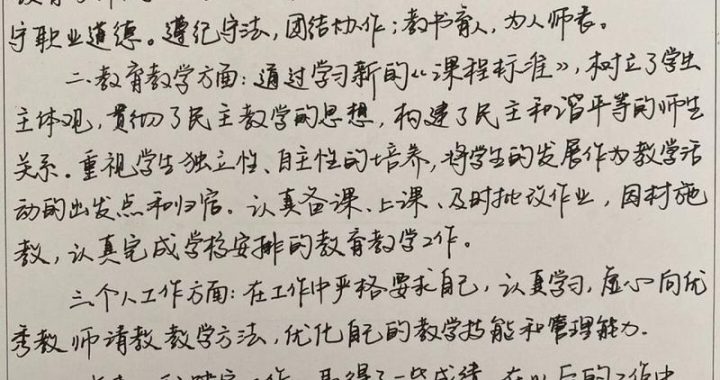 守职业道德。遵纪守法，团结协作；教书育人，为人师表。
二.教育教学方面：通过学习新的《课程标准》，树立了学生
主体观，贯彻了民主教学的思想，构建了民主和谐平等的师生
关系。重视学生独立性、自主性的培养，将学生的发展作为教学活
动的出发点和归宿。认真备课、上课、及时批改作业，因材施
教，认真完成学校安排的教育教学工作。
三.个人工作方面：在工作中严格要求自己，认真学习，虚心向优
秀教师请教教学方法，优化自己的教学技能和管理能力。
工作，取得了一些成绩，在以后的工作中